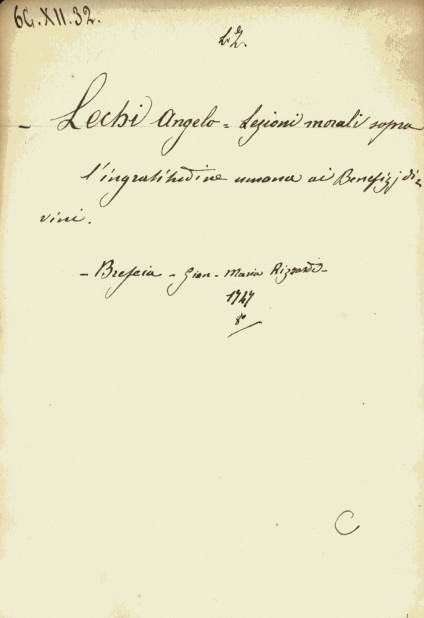 6C.XII.32.
- Lechi Angelo = Lezioni morali sopra
l'ingratitudine umana ai Benefizj di=
vini.
- Brescia - Gian - Maria Rizzardi -
1747
8°
C